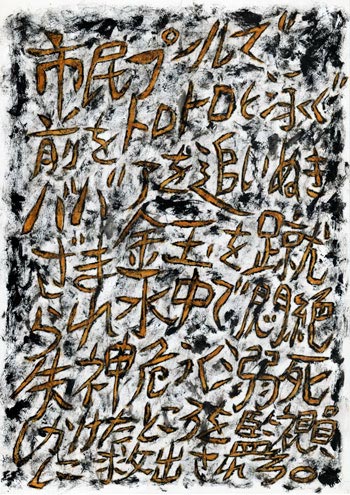 市民プールで
前をトロトロと泳ぐ
ババアを追いぬき
ざま金玉を蹴
られ水中で悶絶
失神危うく溺死
しかけたところを監視員
に救出さる。